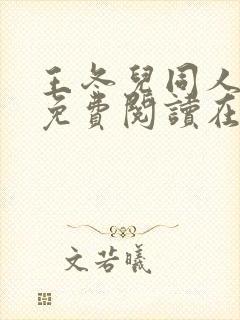 王冬兒同人
免費閱讀在
文若曦